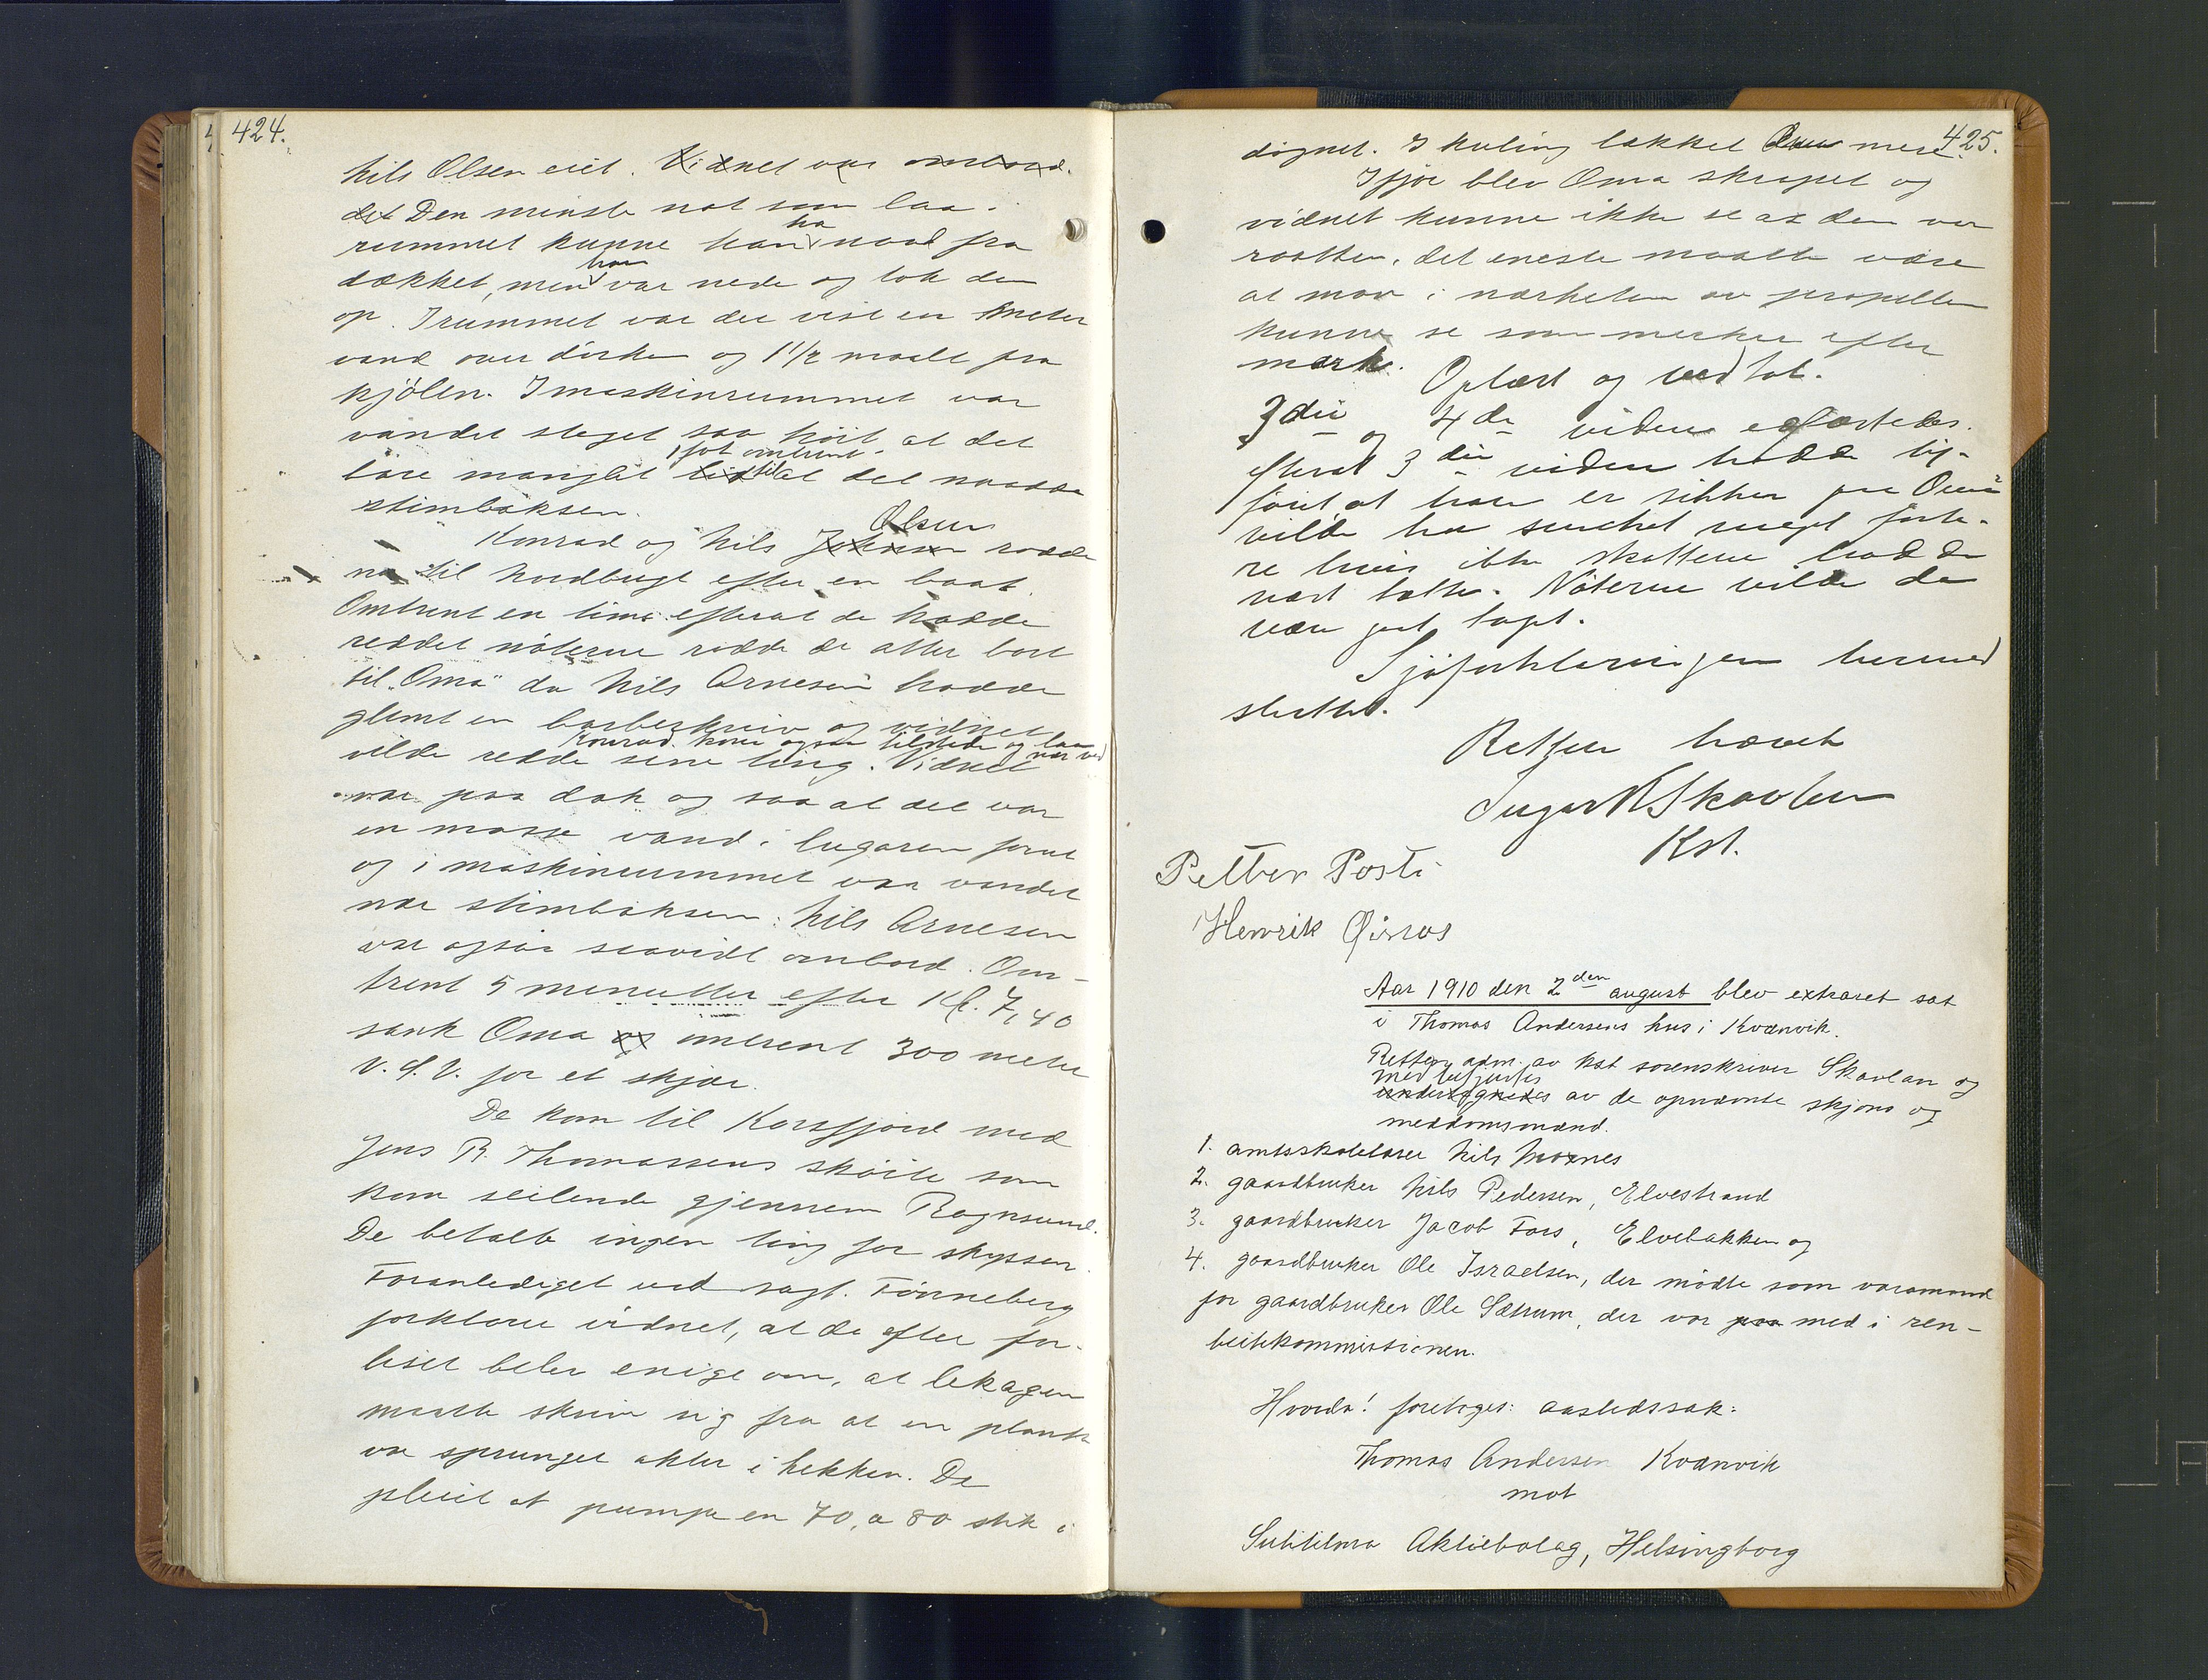 424.
Nils Olsen eiet. Vidnet var ombord.
det Den minste not som laa i
rummet kunne han ha naad fra
dækket, men han var nede og tok den
op. I rummet var der vist en meter
vand over dørken og 1 1/2 maalt fra
kjølen. I maskinrummet var
vandet steget saa høit at det
bare manglet lidt 1 fot omtrent til at det naadde
stimboksen.
Konrad og Nils Johnsen Olsen rodde
nu til Nordbugt efter en baat.
Omtrent en time efterat de hadde
reddet nøterne rodde de atter bort
til "Oma" da Nils Arnesen hadde
glemt en barberkniv og vidnet
vilde redde sine ting. Konrad kom ogsaa tilstede og laa nær ved
Vidnet
var paa dæk og saa at det var
en masse vand i lugaren forut
og i maskinrummet var vandet
nær stimboksen. Nils Arnesen
var ogsaa saavidt ombord. Om-
trent 5 minutter efter Kl. 7,40
sank Oma og omtrent 300 meter
V.S.V. for et skjær.
De kom til Korsfjord med
Jens R. Thomassens skøite som
kom seilende gjennem Rognsund.
De betalte ingen ting for skyssen.
Foranlediget ved sagf. Fønneberg
forklarer vidnet, at de efter for-
liset blev enige om, at lekagen
maatte skrive sig fra at en planke
var sprunget akter i hekken. De
pleiet at pumpe en 70 a 80 støk i
425.
døgnet. I kuling lækket Oma mere.
Ifjor blev Oma skrapet og
vidnet kunne ikke se at den var
raatten, det eneste maatte være
at man i nærheten av propellen
kunne se som merker efter
mark.
Oplæst og vedtat.
3die og 4de vidne
efterat 3die vidne hadde til-
føiet at han er sikker paa Oma
vilde ha sunket meget forte-
re hvis ikke skottene hadde
vært tætte. Nøterne vilde da
være gaat tapt.
Sjøforklaringen hermed
sluttet.
Retten hævet
Skavlan
Kst.
Petter Posti
Henrik
Aar 1910 den 2den august blev extraret sat
i Thomas Andersens hus i Kvænvik.
Retten adm. av kst sorenskriver Skavlan og
med
undertegnedes av de opnævnte skjøns og
meddomsmænd.
1. amtsskolelærer Nils
2. gaardbruker Nils Pedersen, Elvestrand
3. gaardbruker Jacob Fors, Elvebakken og
4. gaardbruker Ole Israelsen, der mødte som varamand
for gaardbruker Ole Sætrum, der var paa med i ren-
beitekommissionen.
Hvorda! foretoges: aastedssak:
Thomas Andersen Kvænvik
mot
Sulitelma Aktiebolag, Helsingborg